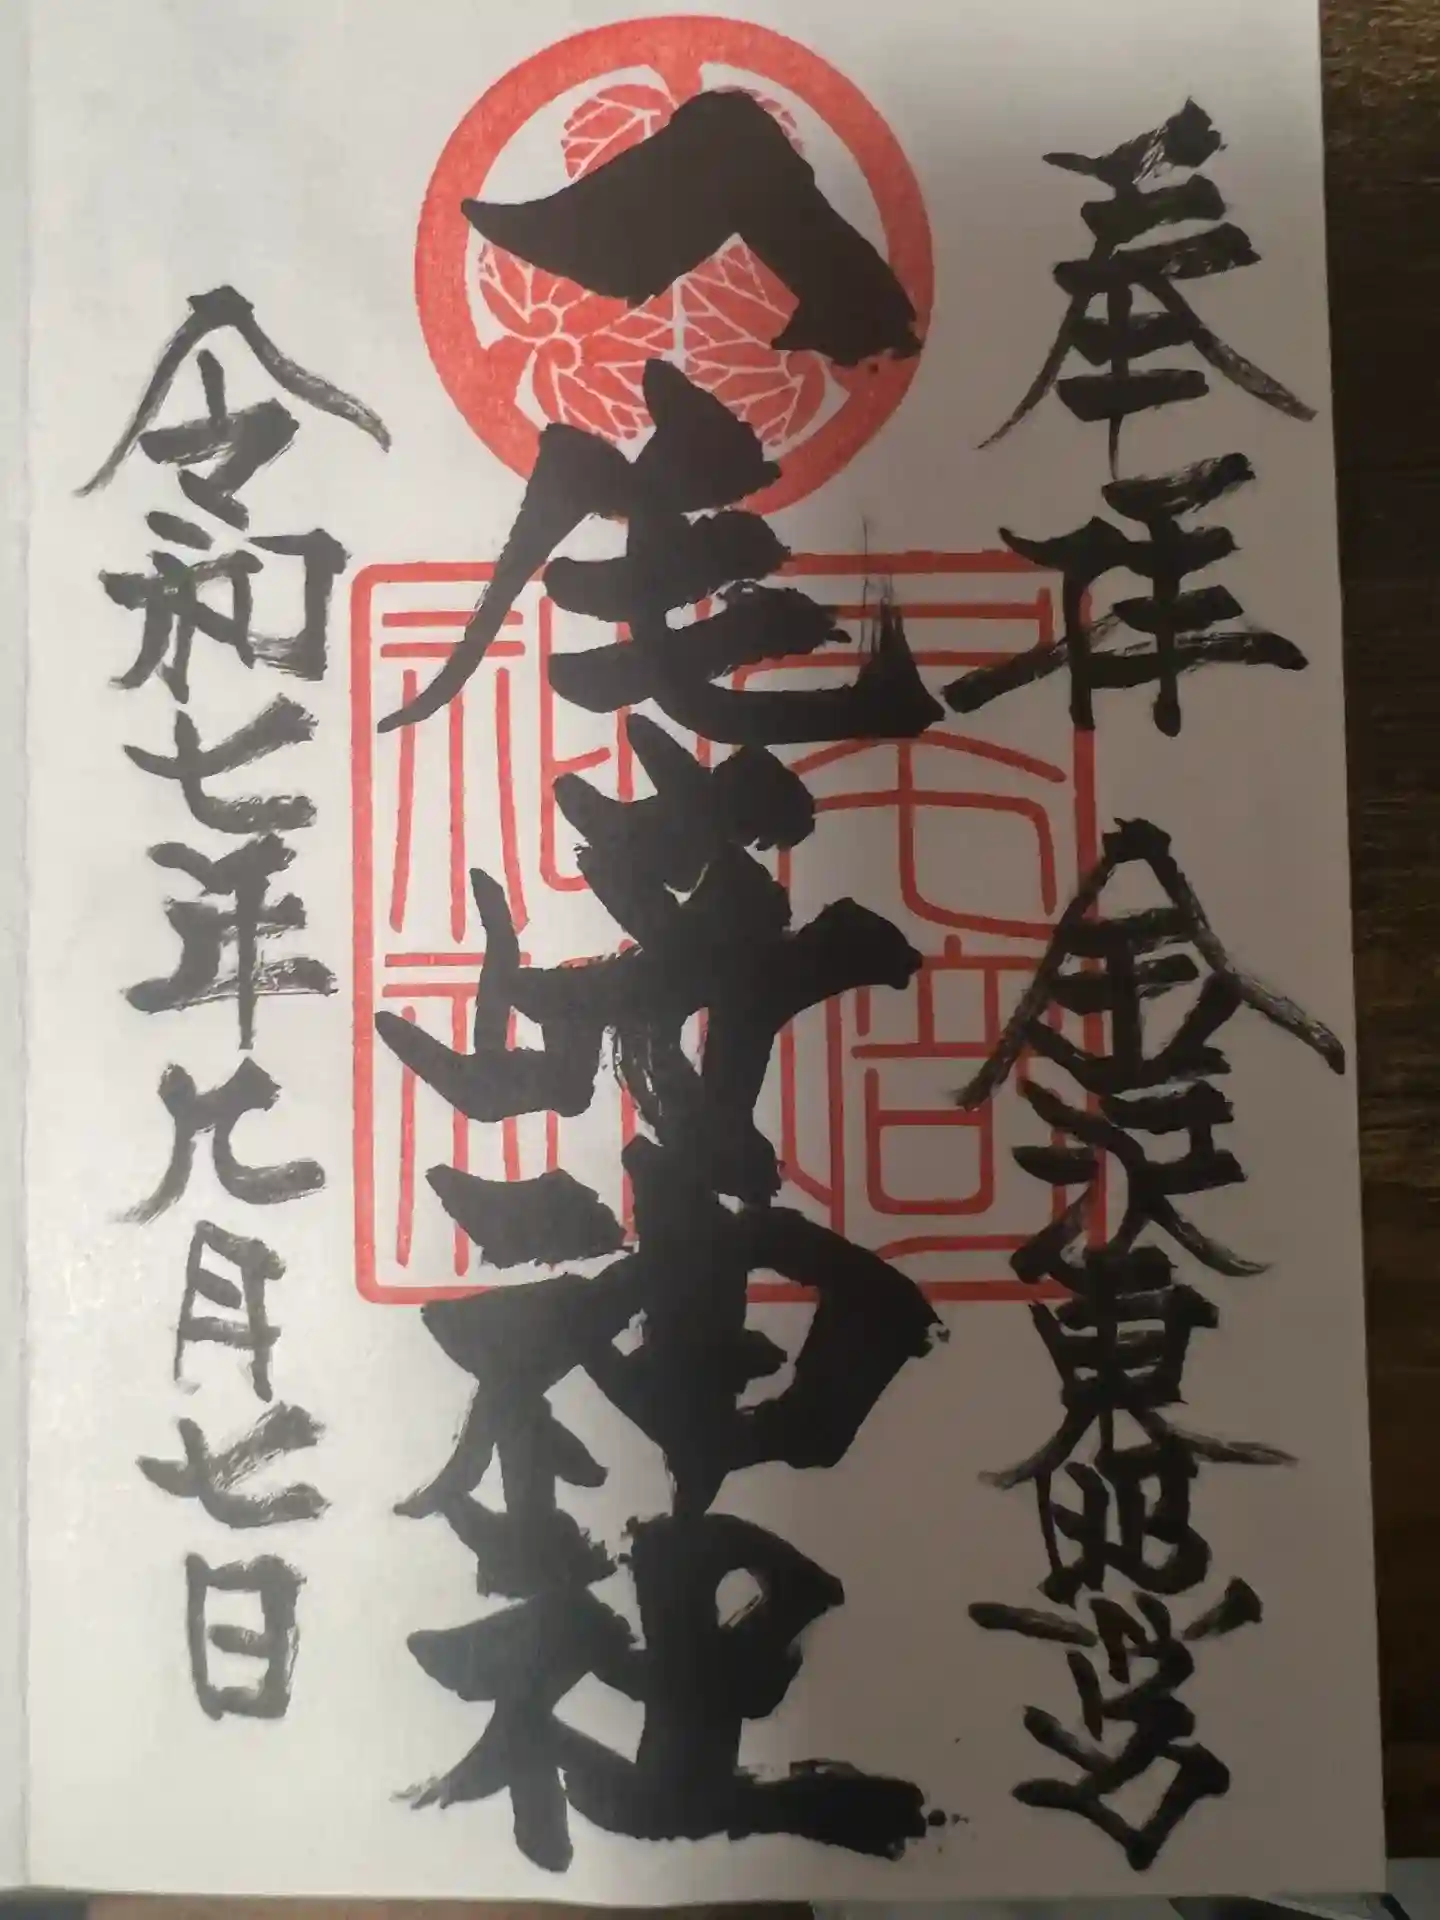 奉拝 金沢東照宮
尾崎神社
令和七年九月七日
尾崎
神社